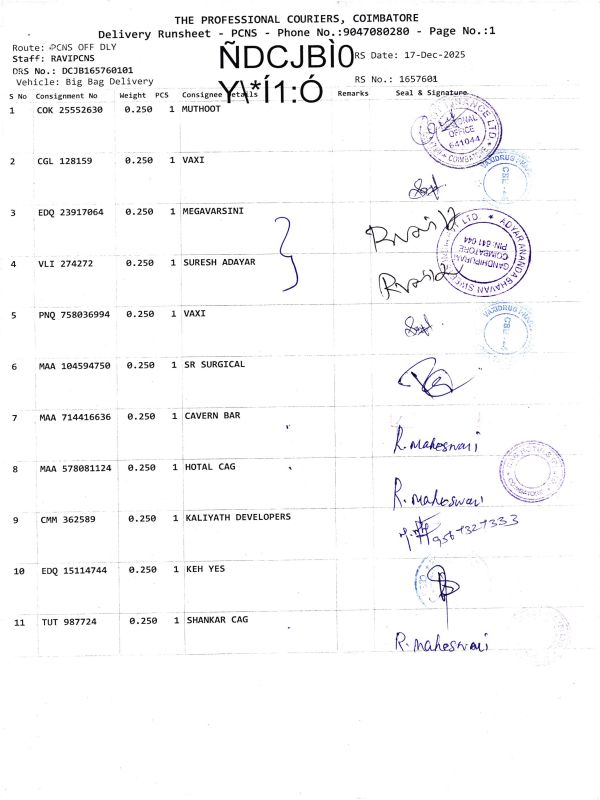 THE PROFESSIONAL COURIERS, COIMBATORE
Delivery Runsheet - PCNS - Phone No.:9047080280 - Page No.:1
Route: PCNS OFF DLY
Staff: RAVIPCNS
DRS No.: DCJB165760101
Vehicle: Big Bag Delivery
ÑDCJBÌ0
Y\*Í1:Ó
RS Date: 17-Dec-2025
RS No.: 1657601
S No Consignment No Weight PCS Consignee Details Remarks Seal & Signature
1 COK 25552630 0.250 1 MUTHOOT
OFFICE
641044
COIMBATORE
2 CGL 128159 0.250 1 VAXI
3 EDQ 23917064 0.250 1 MEGAVARSINI
4 VLI 274272 0.250 1 SURESH ADAYAR
ADYAR ANANDA BHAVAN
GANDHIPURAM
COIMBATORE
PIN: 641 044
5 PNQ 758036994 0.250 1 VAXI
6 MAA 104594750 0.250 1 SR SURGICAL
7 MAA 714416636 0.250 1 CAVERN BAR
R. maheswari
8 MAA 578081124 0.250 1 HOTAL CAG
R. maheswari
COIMBATORE
9 CMM 362589 0.250 1 KALIYATH DEVELOPERS
9567327333
10 EDQ 15114744 0.250 1 KEH YES
11 TUT 987724 0.250 1 SHANKAR CAG
R. maheswari